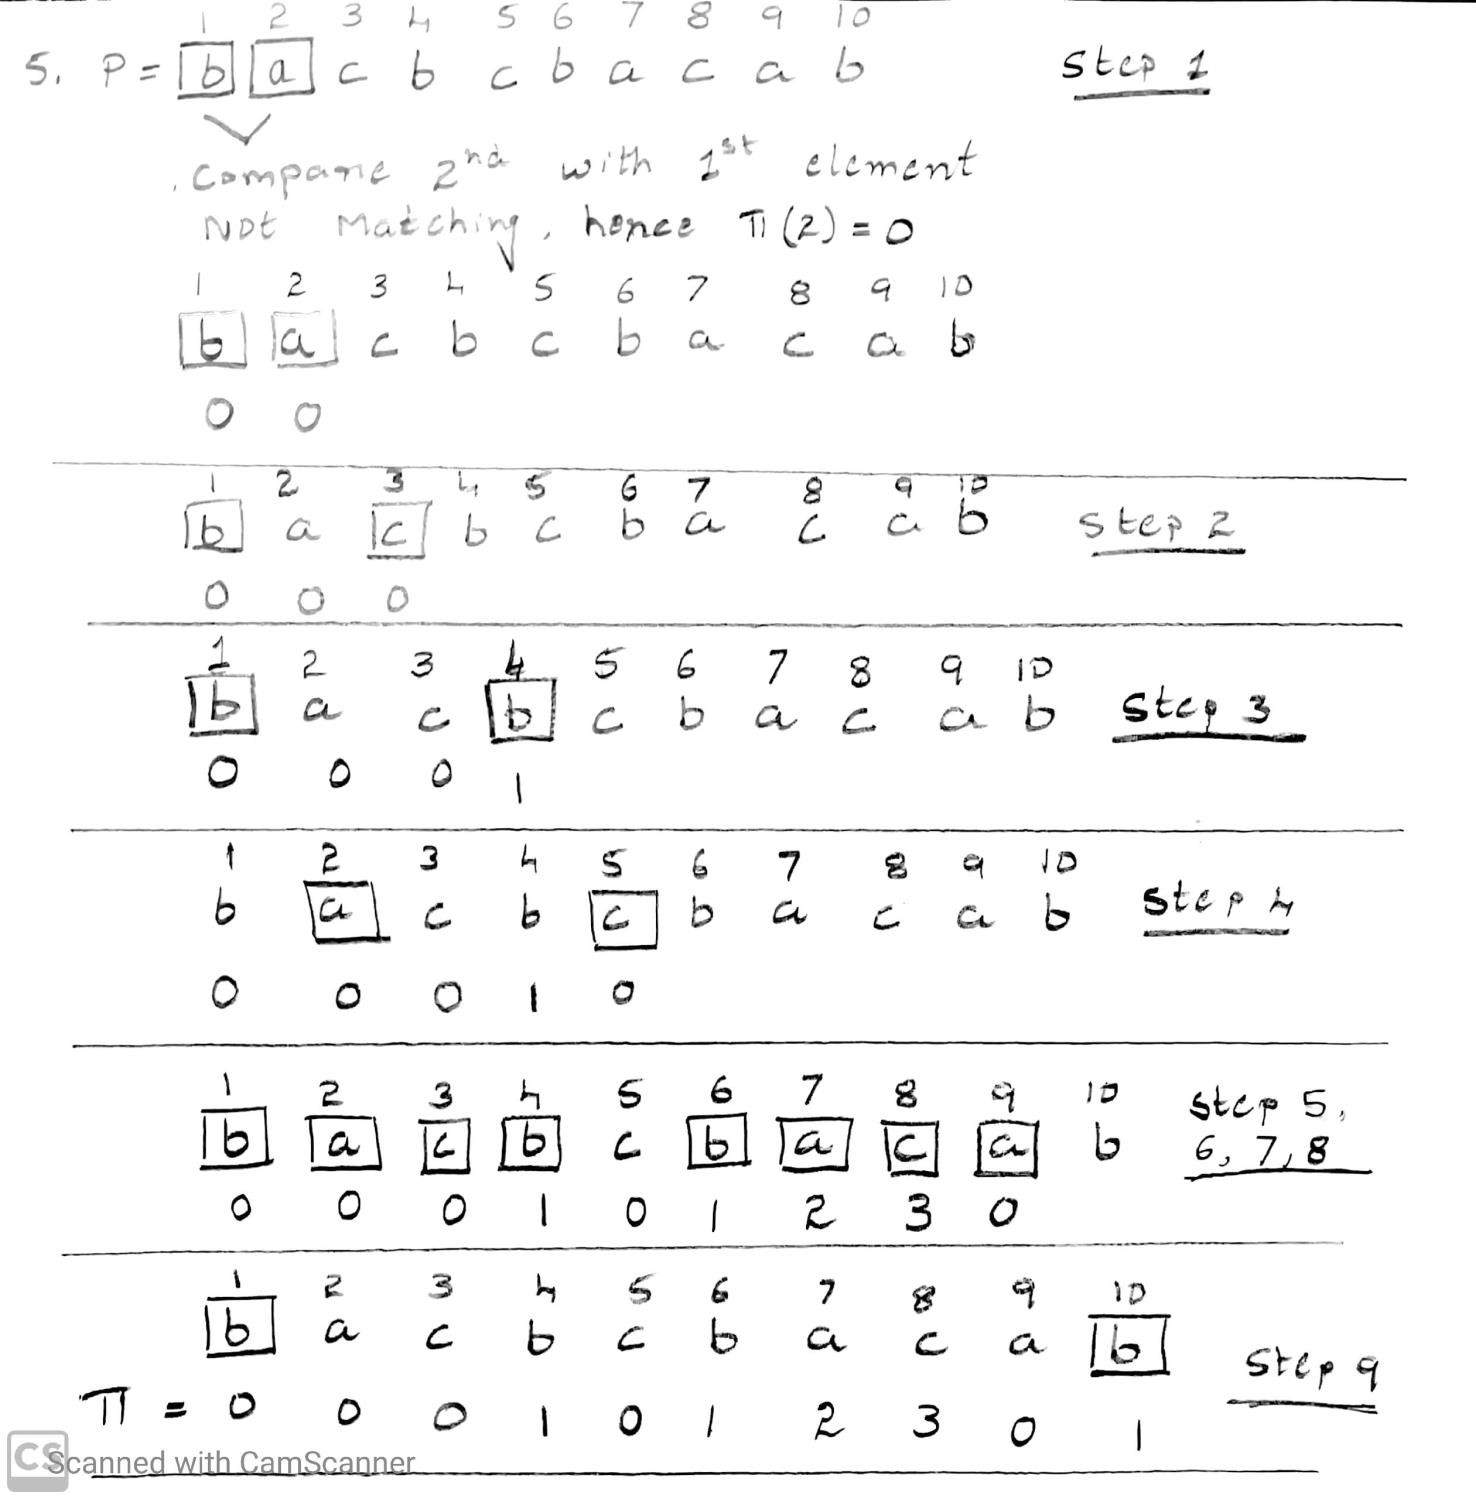 1 2 3 4 5 6 7 8 9 10
5. P = b a c b c b a c a b Step 1
Compare 2nd with 1st element
Not Matching, hence π(2) = 0
1 2 3 4 5 6 7 8 9 10
b a c b c b a c a b
0 0
1 2 3 4 5 6 7 8 9 10
b a c b c b a c a b Step 2
0 0 0
1 2 3 4 5 6 7 8 9 10
b a c b c b a c a b Step 3
0 0 0 1
1 2 3 4 5 6 7 8 9 10
b a c b c b a c a b Step 4
0 0 0 1 0
1 2 3 4 5 6 7 8 9 10 Step 5,
b a c b c b a c a b 6, 7, 8
0 0 0 1 0 1 2 3 0
1 2 3 4 5 6 7 8 9 10
b a c b c b a c a b Step 9
π = 0 0 0 1 0 1 2 3 0 1
CS Scanned with CamScanner